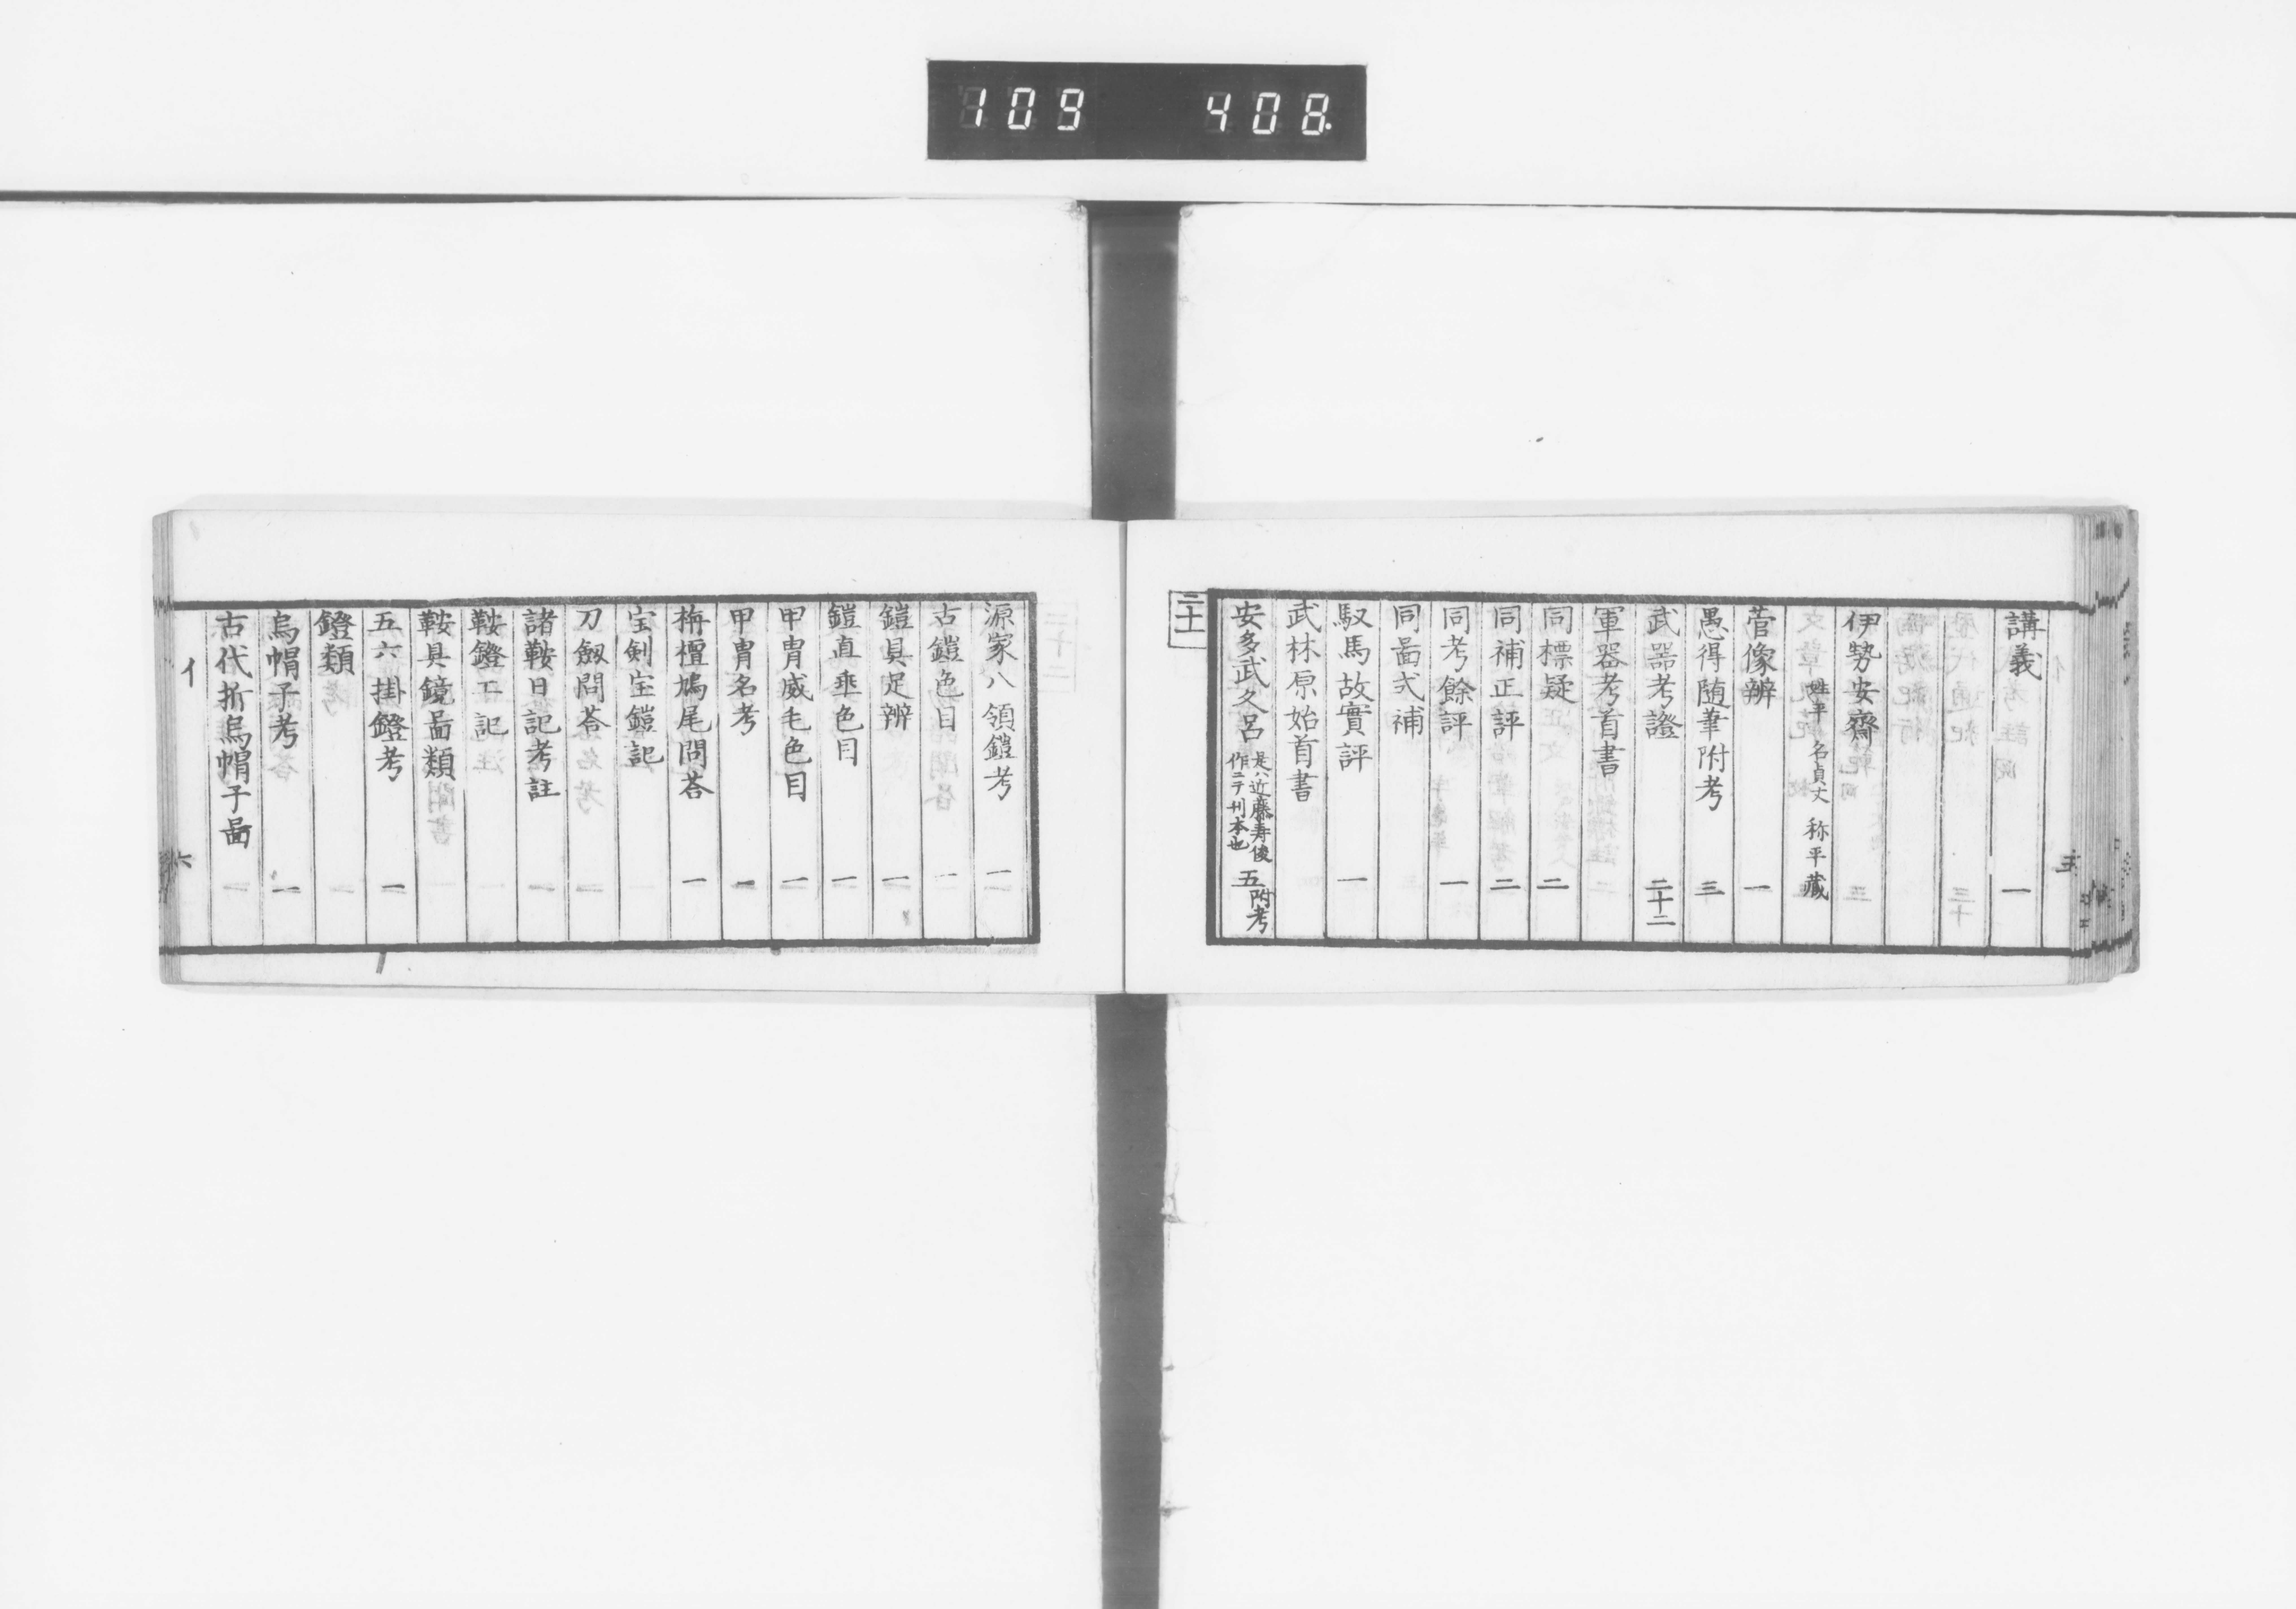 109 408
講義 一
伊勢安齋
姓平 名貞丈 称平藏
菅像辨 一
愚得随筆附考 三
武器考證 二十二
軍器考首書
同標疑 二
同補正評 二
同考餘評 一
同啚式補
馭馬故實評 一
武林原始首書
安多武久呂 是ハ近藤寿俊作ニテ刊本也 五附考
二十一
源家八領鎧考 一
古鎧色目
鎧具足辨 一
鎧直垂色目 一
甲冑威毛色目 一
甲冑名考 一
栴檀鳩尾問荅 一
宝剣宝鎧記
刀劔問荅
諸鞍日記考註 一
鞍鐙工記
鞍具鏡啚類
五六掛鐙考 一
鐙類
烏帽子考 一
古代折烏帽子啚
イ 六